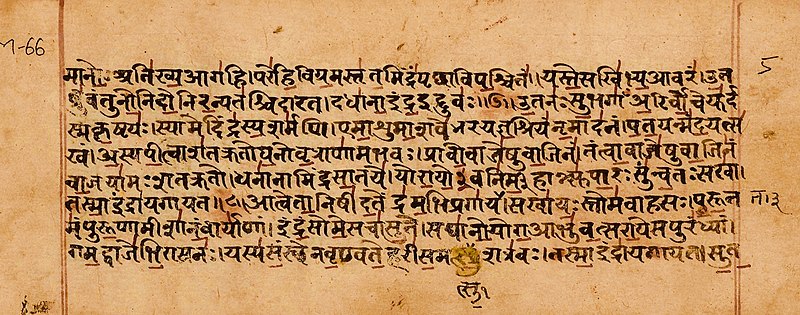 -66
मानो अतिख्य आगहि। परेहि विग्रमस्तृतमिंद्रं पृच्छाविपश्चितं॥ यस्तेसखिभ्यआवरं। उत
5
ब्रुवंतुनोनिदोनिरन्यतश्चिदारत। दधानाइंद्रइद्दुवः॥७। उतनःसुभगाँअरिर्वोचेयुर्द
स्मकृष्टयः। स्यामेदिंद्रस्यशर्मणि। एमाशुमाशवेभरयज्ञश्रियंनृमादनं। पतयन्मंदयत्स
खं। अस्यपीत्वाशतक्रतोघनोवृत्राणामभवः। प्रावोवाजेषुवाजिनं। तंत्वावाजेषुवाजिनं
वाजयामःशतक्रतो। धनानामिंद्रसातये। योरायो३वनिर्महान्त्सुपारःसुन्वतःसखा।
तस्माइंद्रायगायत॥८। आत्वेतानिषीदतेंद्रमभिप्रगायतसखायःस्तोमवाहसः। पुरूत
मंपुरूणामीशानंवार्याणां। इंद्रंसोमेसचासुते। सघानोयोगआभुवत्सरायेसपुरंध्यां।
गमद्वाजेभिरासनः। यस्यसंस्थेनवृण्वतेहरीसमत्सुशत्रवः। तस्माइंद्रायगायत। सुत
त्सु१